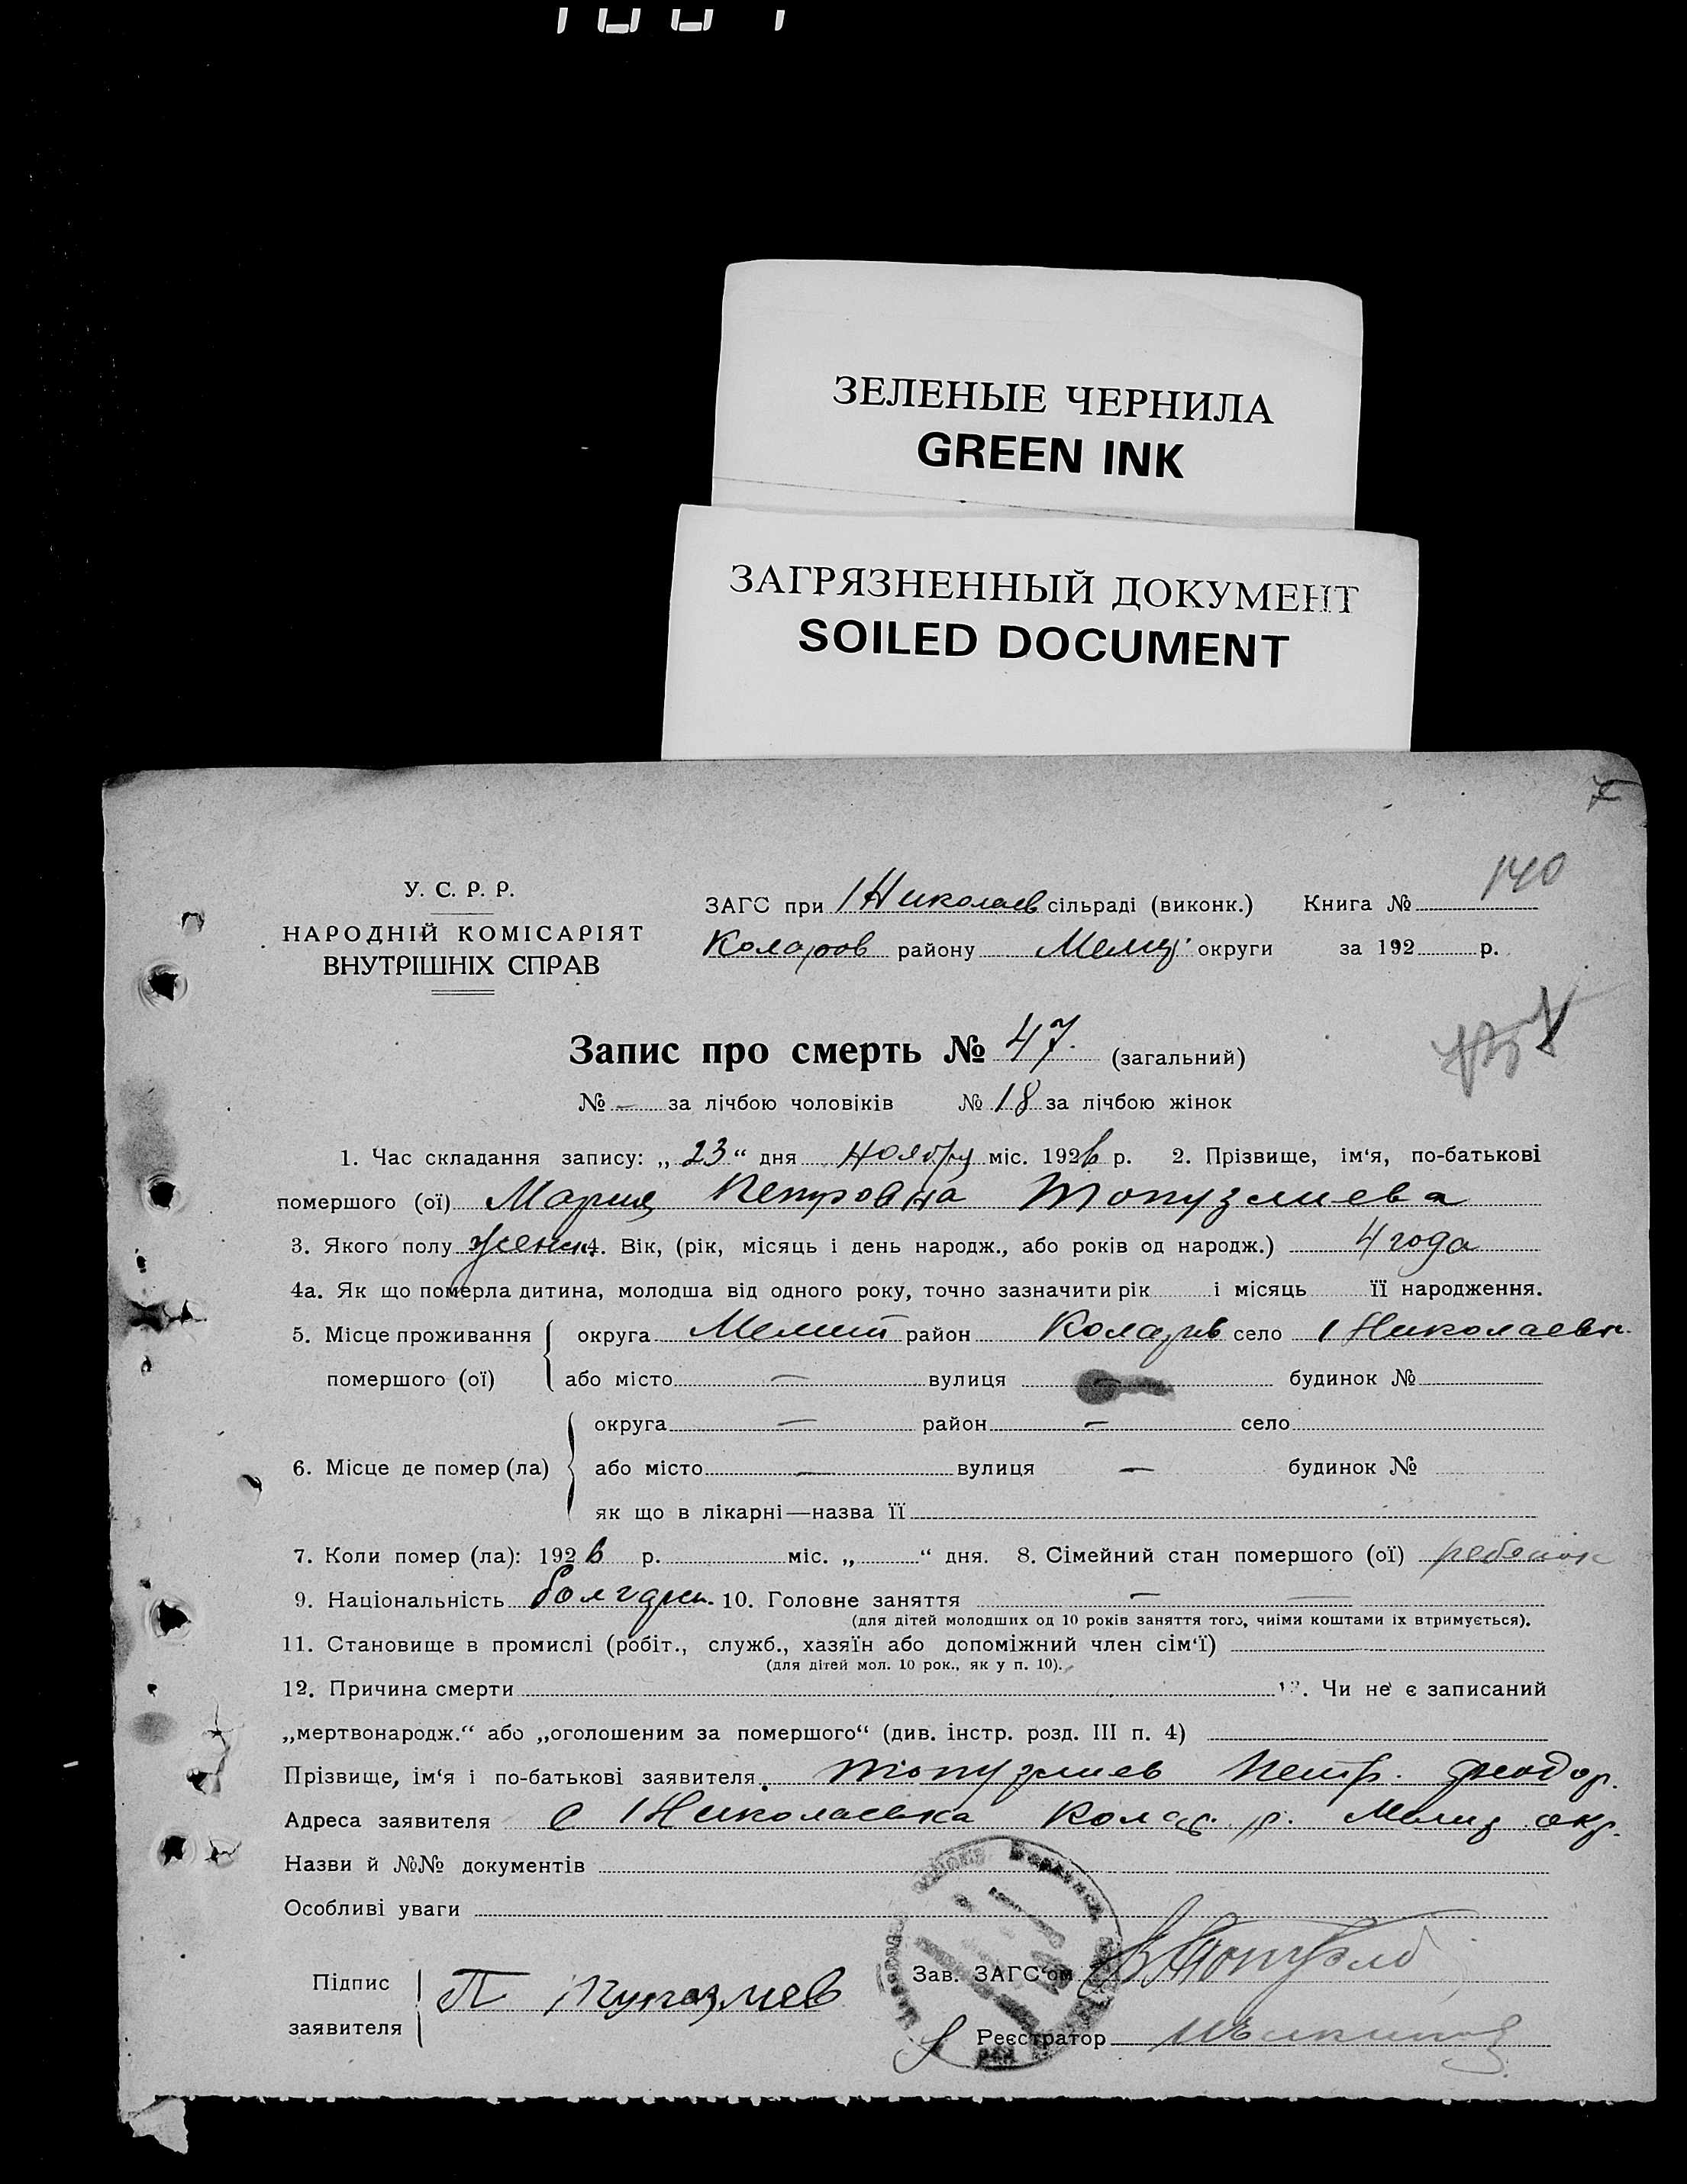 ЗЕЛЕНЫЕ ЧЕРНИЛА
GREEN INK
ЗАГРЯЗНЕННЫЙ ДОКУМЕНТ
SOILED DOCUMENT
140
У. С. Р. Р.
НАРОДНІЙ КОМІСАРІЯТ
ВНУТРІШНІХ СПРАВ
ЗАГС при 1 Николаев сільраді (виконк.) Книга №
Коларов району Мелит. округи за 192 р.
Запис про смерть № 47. (загальний)
№ — за лічбою чоловіків № 18 за лічбою жінок
1. Час складання запису: „ 23 “ дня Ноября міс. 1926 р. 2. Прізвище, ім‘я, по-батькові
помершого (ої) Мария Петровна Топузлиева
3. Якого полу женск. 4. Вік, (рік, місяць і день народж., або років од народж.) 4 года
4а. Як що померла дитина, молодша від одного року, точно зазначити рік і місяць її народження.
5. Місце проживання округа Мелит район Коларов село 1 Николаевк.
помершого (ої) або місто — вулиця — будинок №
округа — район — село
6. Місце де помер (ла) або місто — вулиця — будинок №
як що в лікарні—назва її
7. Коли помер (ла): 1926 р. міс. „ “ дня. 8. Сімейний стан помершого (ої) ребенок
9. Національність болгарк. 10. Головне заняття —
(для дітей молодших од 10 років заняття того, чиїми коштами їх втримується).
11. Становище в промислі (робіт., служб., хазяїн або допоміжний член сім‘ї)
(для дітей мол. 10 рок., як у п. 10).
12. Причина смерти 13. Чи не є записаний
„мертвонародж.“ або „оголошеним за помершого“ (див. інстр. розд. III п. 4)
Прізвище, ім‘я і по-батькові заявителя. Топузлиев Петр. Феодор.
Адреса заявителя с 1 Николаевка Колар. р. Мелит окр.
Назви й №№ документів
Особливі уваги
Підпис
заявителя
П
Зав. ЗАГС‘ом
Реєстратор